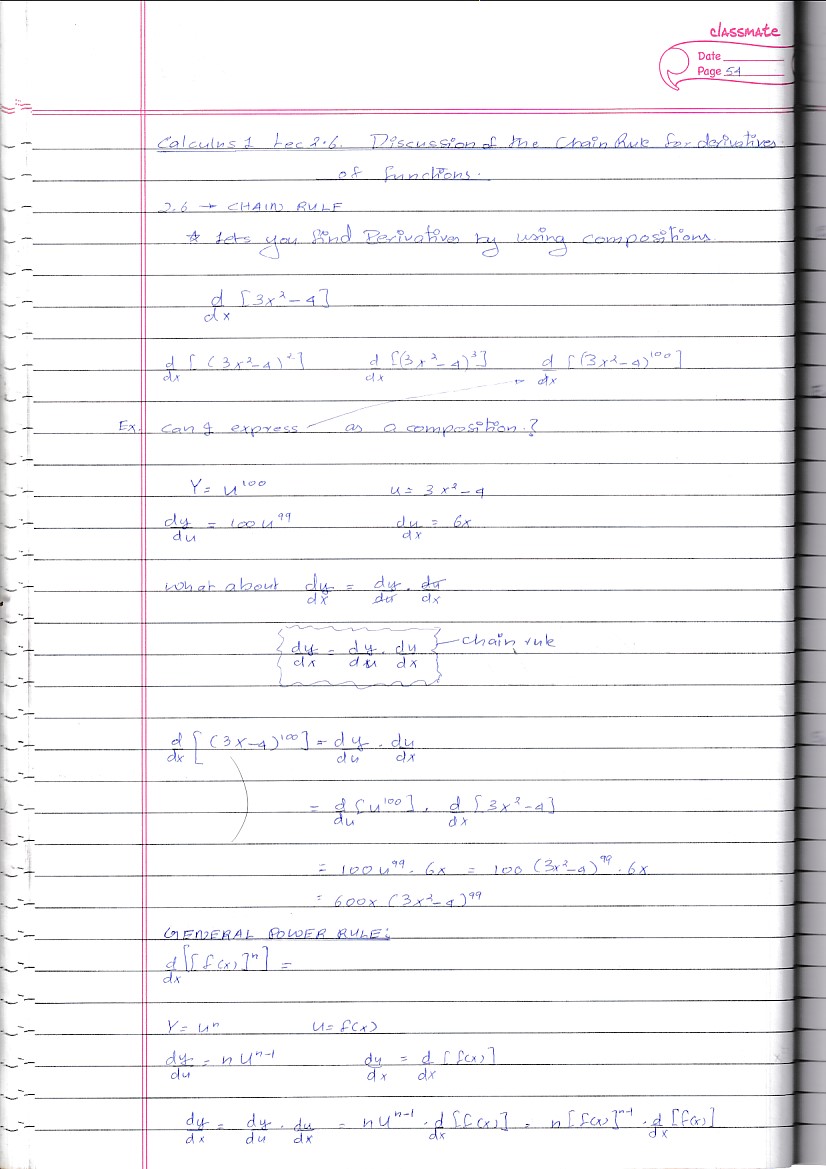 classmate
Date
Page 54
Calculus 1 Lec 2.6. Discussion of the Chain Rule for derivatives
of functions.
2.6 → CHAIN RULE
* Lets you find Derivatives by using compositions
d/dx [3x²-4]
d/dx [(3x²-4)²] d/dx [(3x²-4)³] d/dx [(3x²-4)¹⁰⁰]
Ex. Can I express as a composition?
Y = u¹⁰⁰ u = 3x²-4
dy/du = 100u⁹⁹ du/dx = 6x
What about dy/dx = dy/du · du/dx
dy/dx = dy/du · du/dx chain rule
d/dx [(3x-4)¹⁰⁰] = dy/du · du/dx
= d/du [u¹⁰⁰] · d/dx [3x²-4]
= 100u⁹⁹ · 6x = 100 (3x²-4)⁹⁹ · 6x
= 600x (3x²-4)⁹⁹
GENERAL POWER RULE:
d/dx [[f(x)]ⁿ] =
Y = uⁿ u = f(x)
dy/du = n uⁿ⁻¹ du/dx = d/dx [f(x)]
dy/dx = dy/du · du/dx = n uⁿ⁻¹ · d/dx [f(x)] = n[f(x)]ⁿ⁻¹ · d/dx [f(x)]